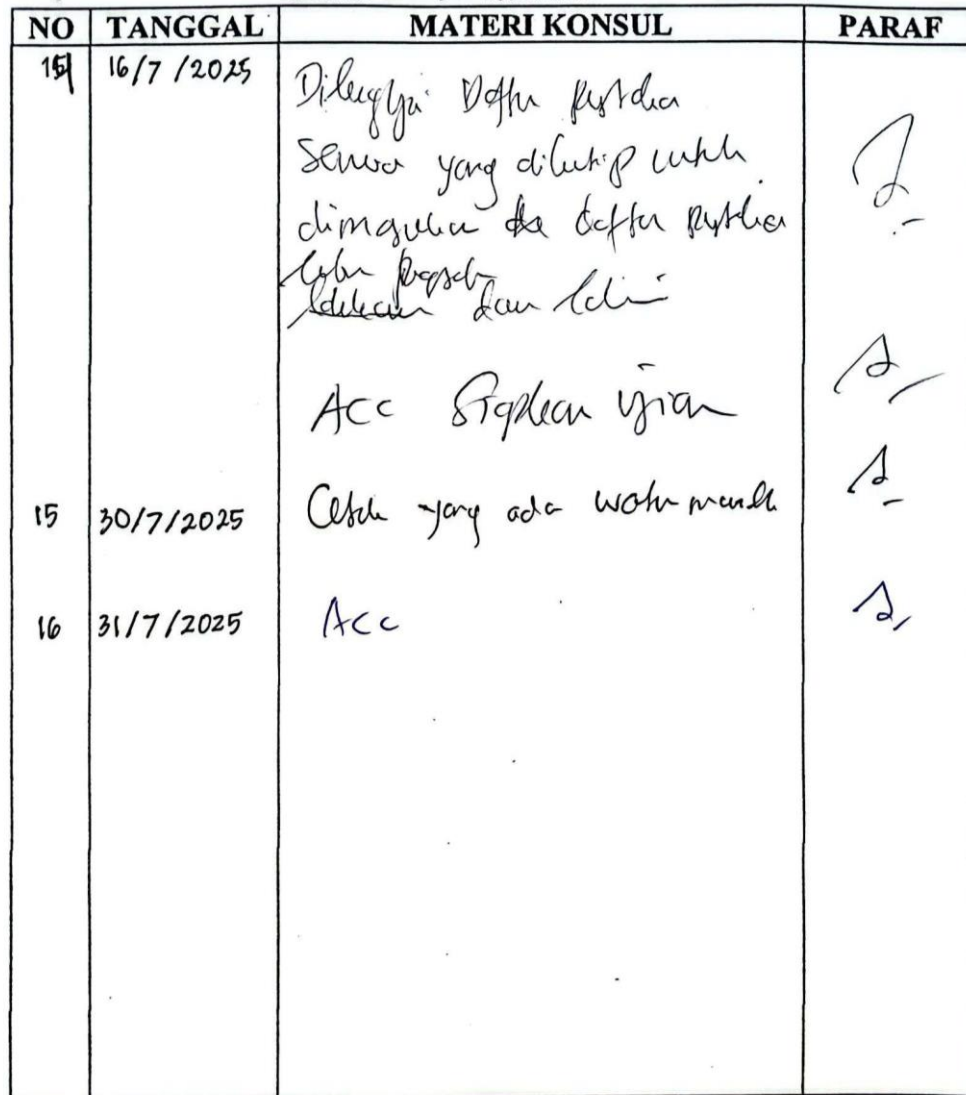 NO TANGGAL MATERI KONSUL PARAF
16/7/2025 Dilengkapi Daftar pustaka
semua yang dikutip untuk
dimasukan ke daftar pustaka
dan
ACC Siapkan ujian
15 30/7/2025 Cetak yang ada water mark
16 31/7/2025 Acc